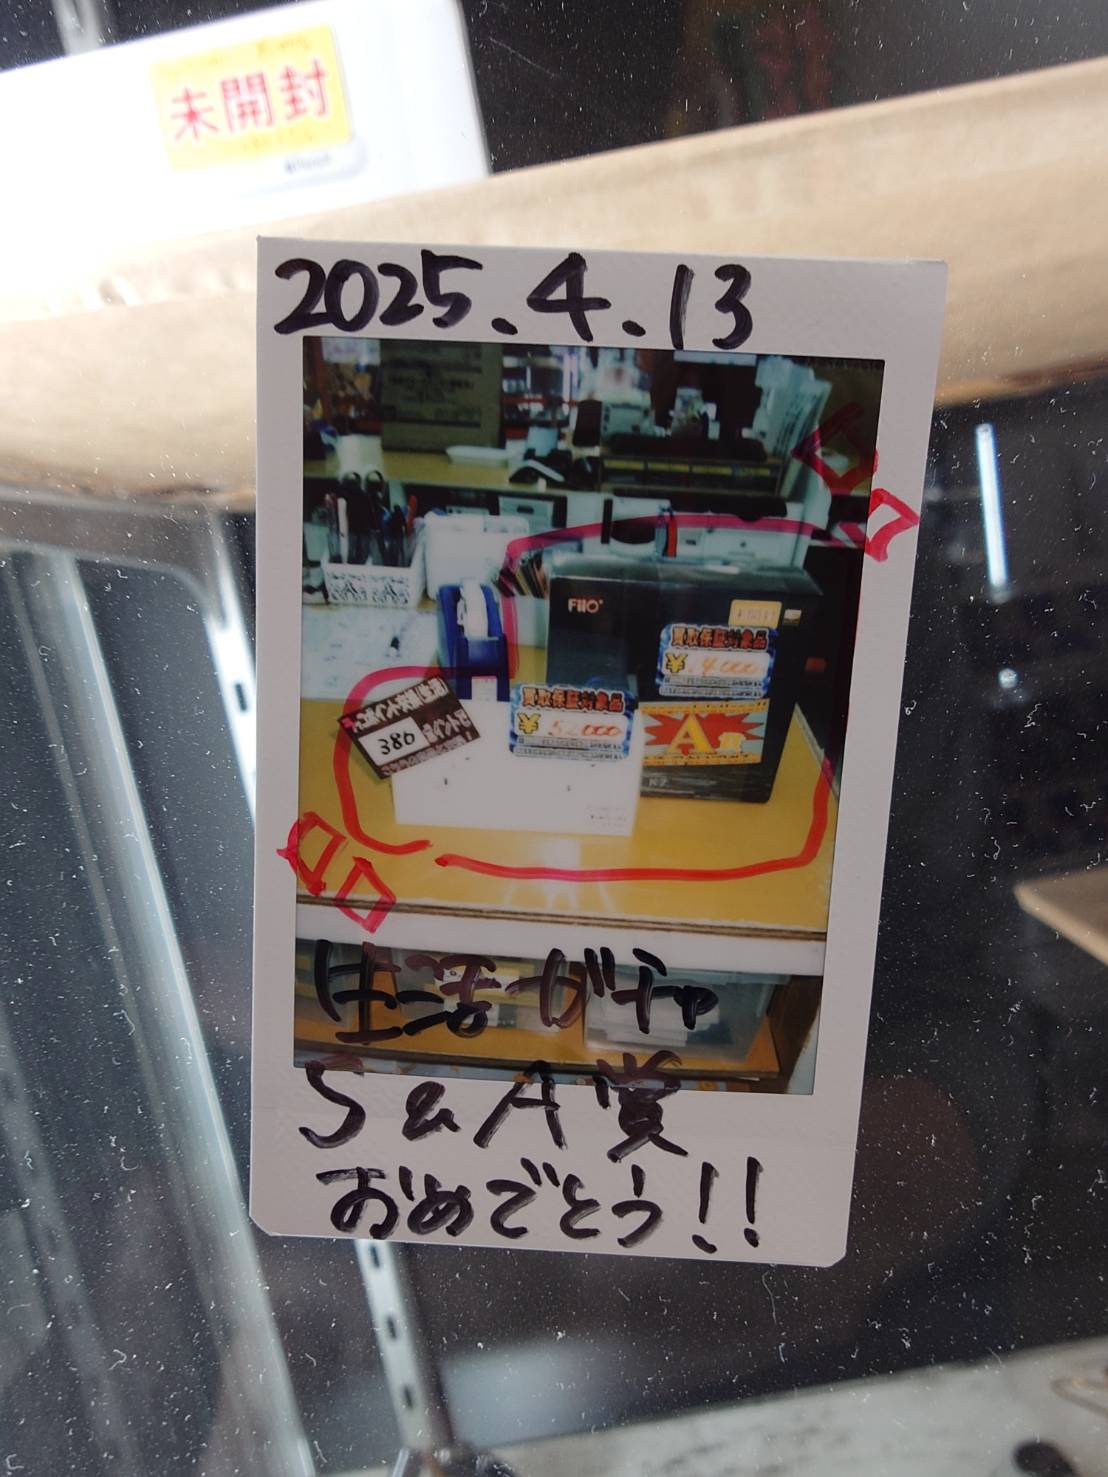 未開封
2025.4.13
FiiO
買取保証対象品
¥4,000
A賞
K7
買取保証対象品
¥52,000
380
生活ガチャ
S&A賞
おめでとう!!